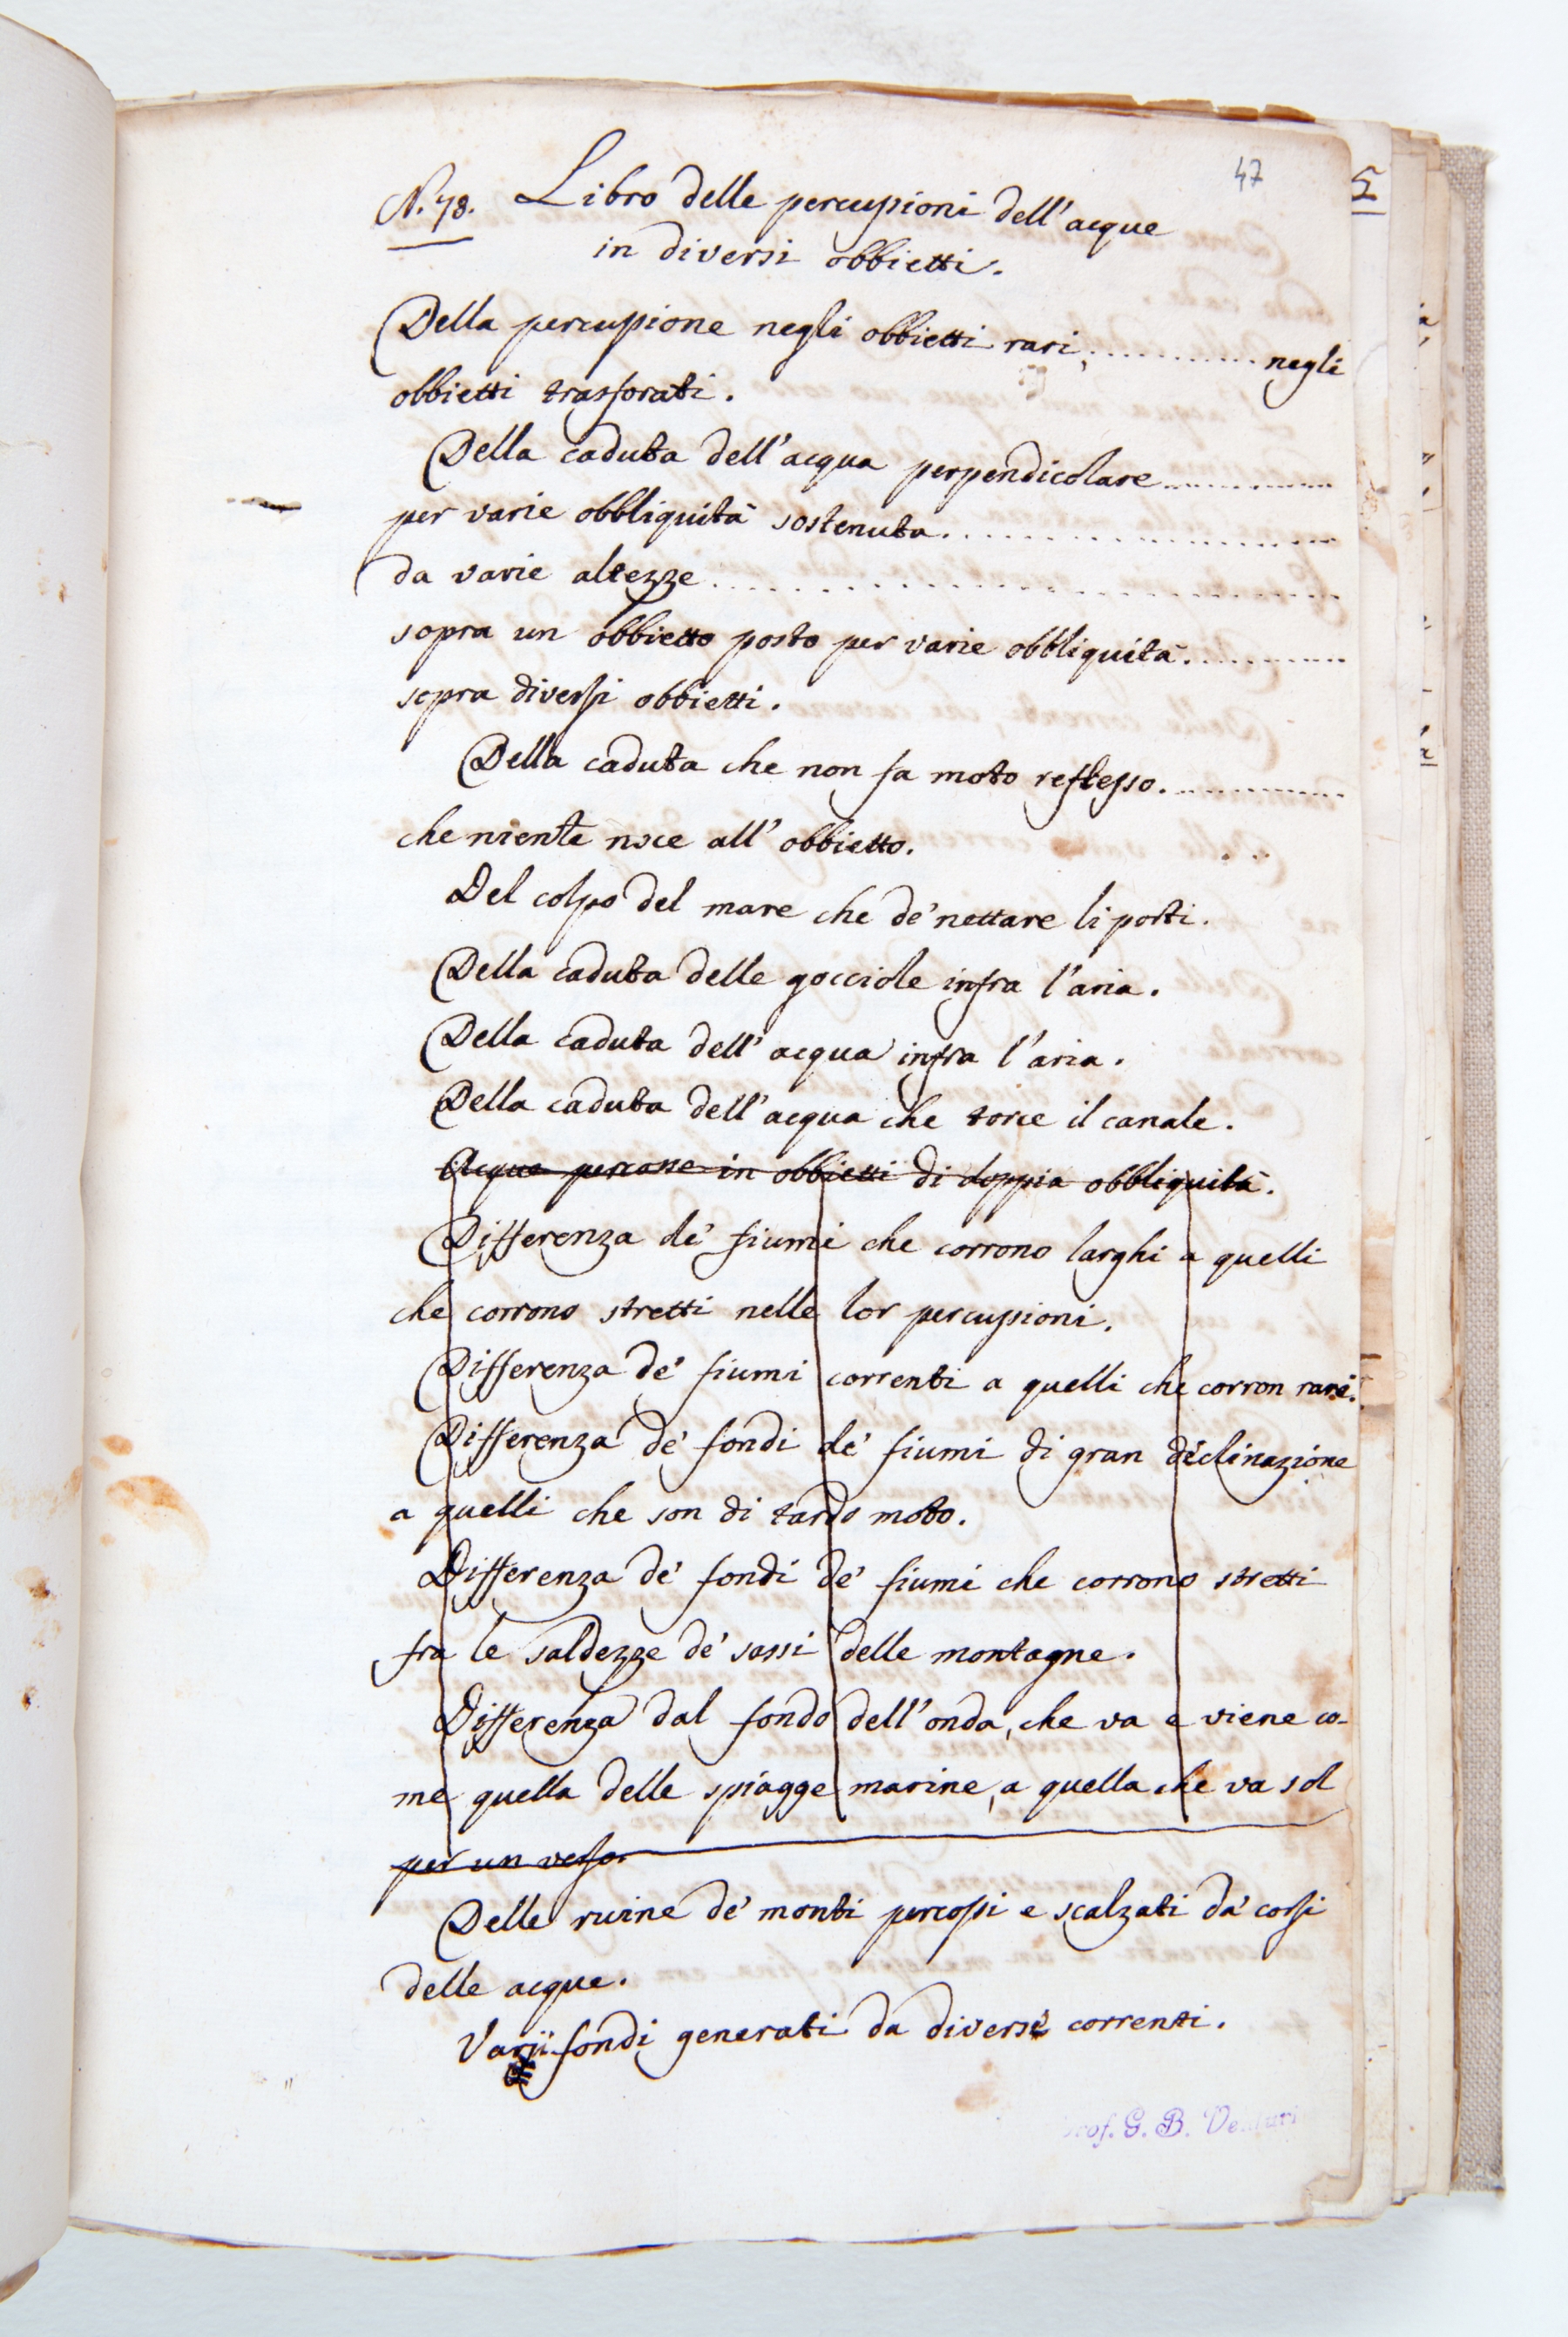 47
N. 78. Libro delle percussioni dell'acque
in diversi obbietti.
Della percussione negli obbietti rari, ............ negli
obbietti trasforati.
Della caduta dell'acqua perpendicolare ............
per varie obbliquità sostenuta. ....................
da varie altezze ..............................
sopra un obbietto posto per varie obbliquità. ............
sopra diversi obbietti.
Della caduta che non fa moto reflesso. ............
che niente noce all'obbietto.
Del colpo del mare che de' nettare li porti.
Della caduta delle gocciole infra l'aria.
Della caduta dell'acqua infra l'aria.
Della caduta dell'acqua che torce il canale.
Acque percosse in obbietti di doppia obbliquità.
Differenza de' fiumi che corrono larghi a quelli
che corrono stretti nelle lor percussioni.
Differenza de' fiumi correnti a quelli che corron rari.
Differenza de' fondi de' fiumi di gran declinazione
a quelli che son di tardo moto.
Differenza de' fondi de' fiumi che corrono stretti
fra le saldezze de' sassi delle montagne.
Differenza dal fondo dell'onda, che va e viene co-
me quella delle spiagge marine, a quella che va sol
per un verso.
Delle ruine de' monti percossi e scalzati da' corsi
delle acque.
Varii fondi generati da diverse correnti.
Prof. G. B. Venturi